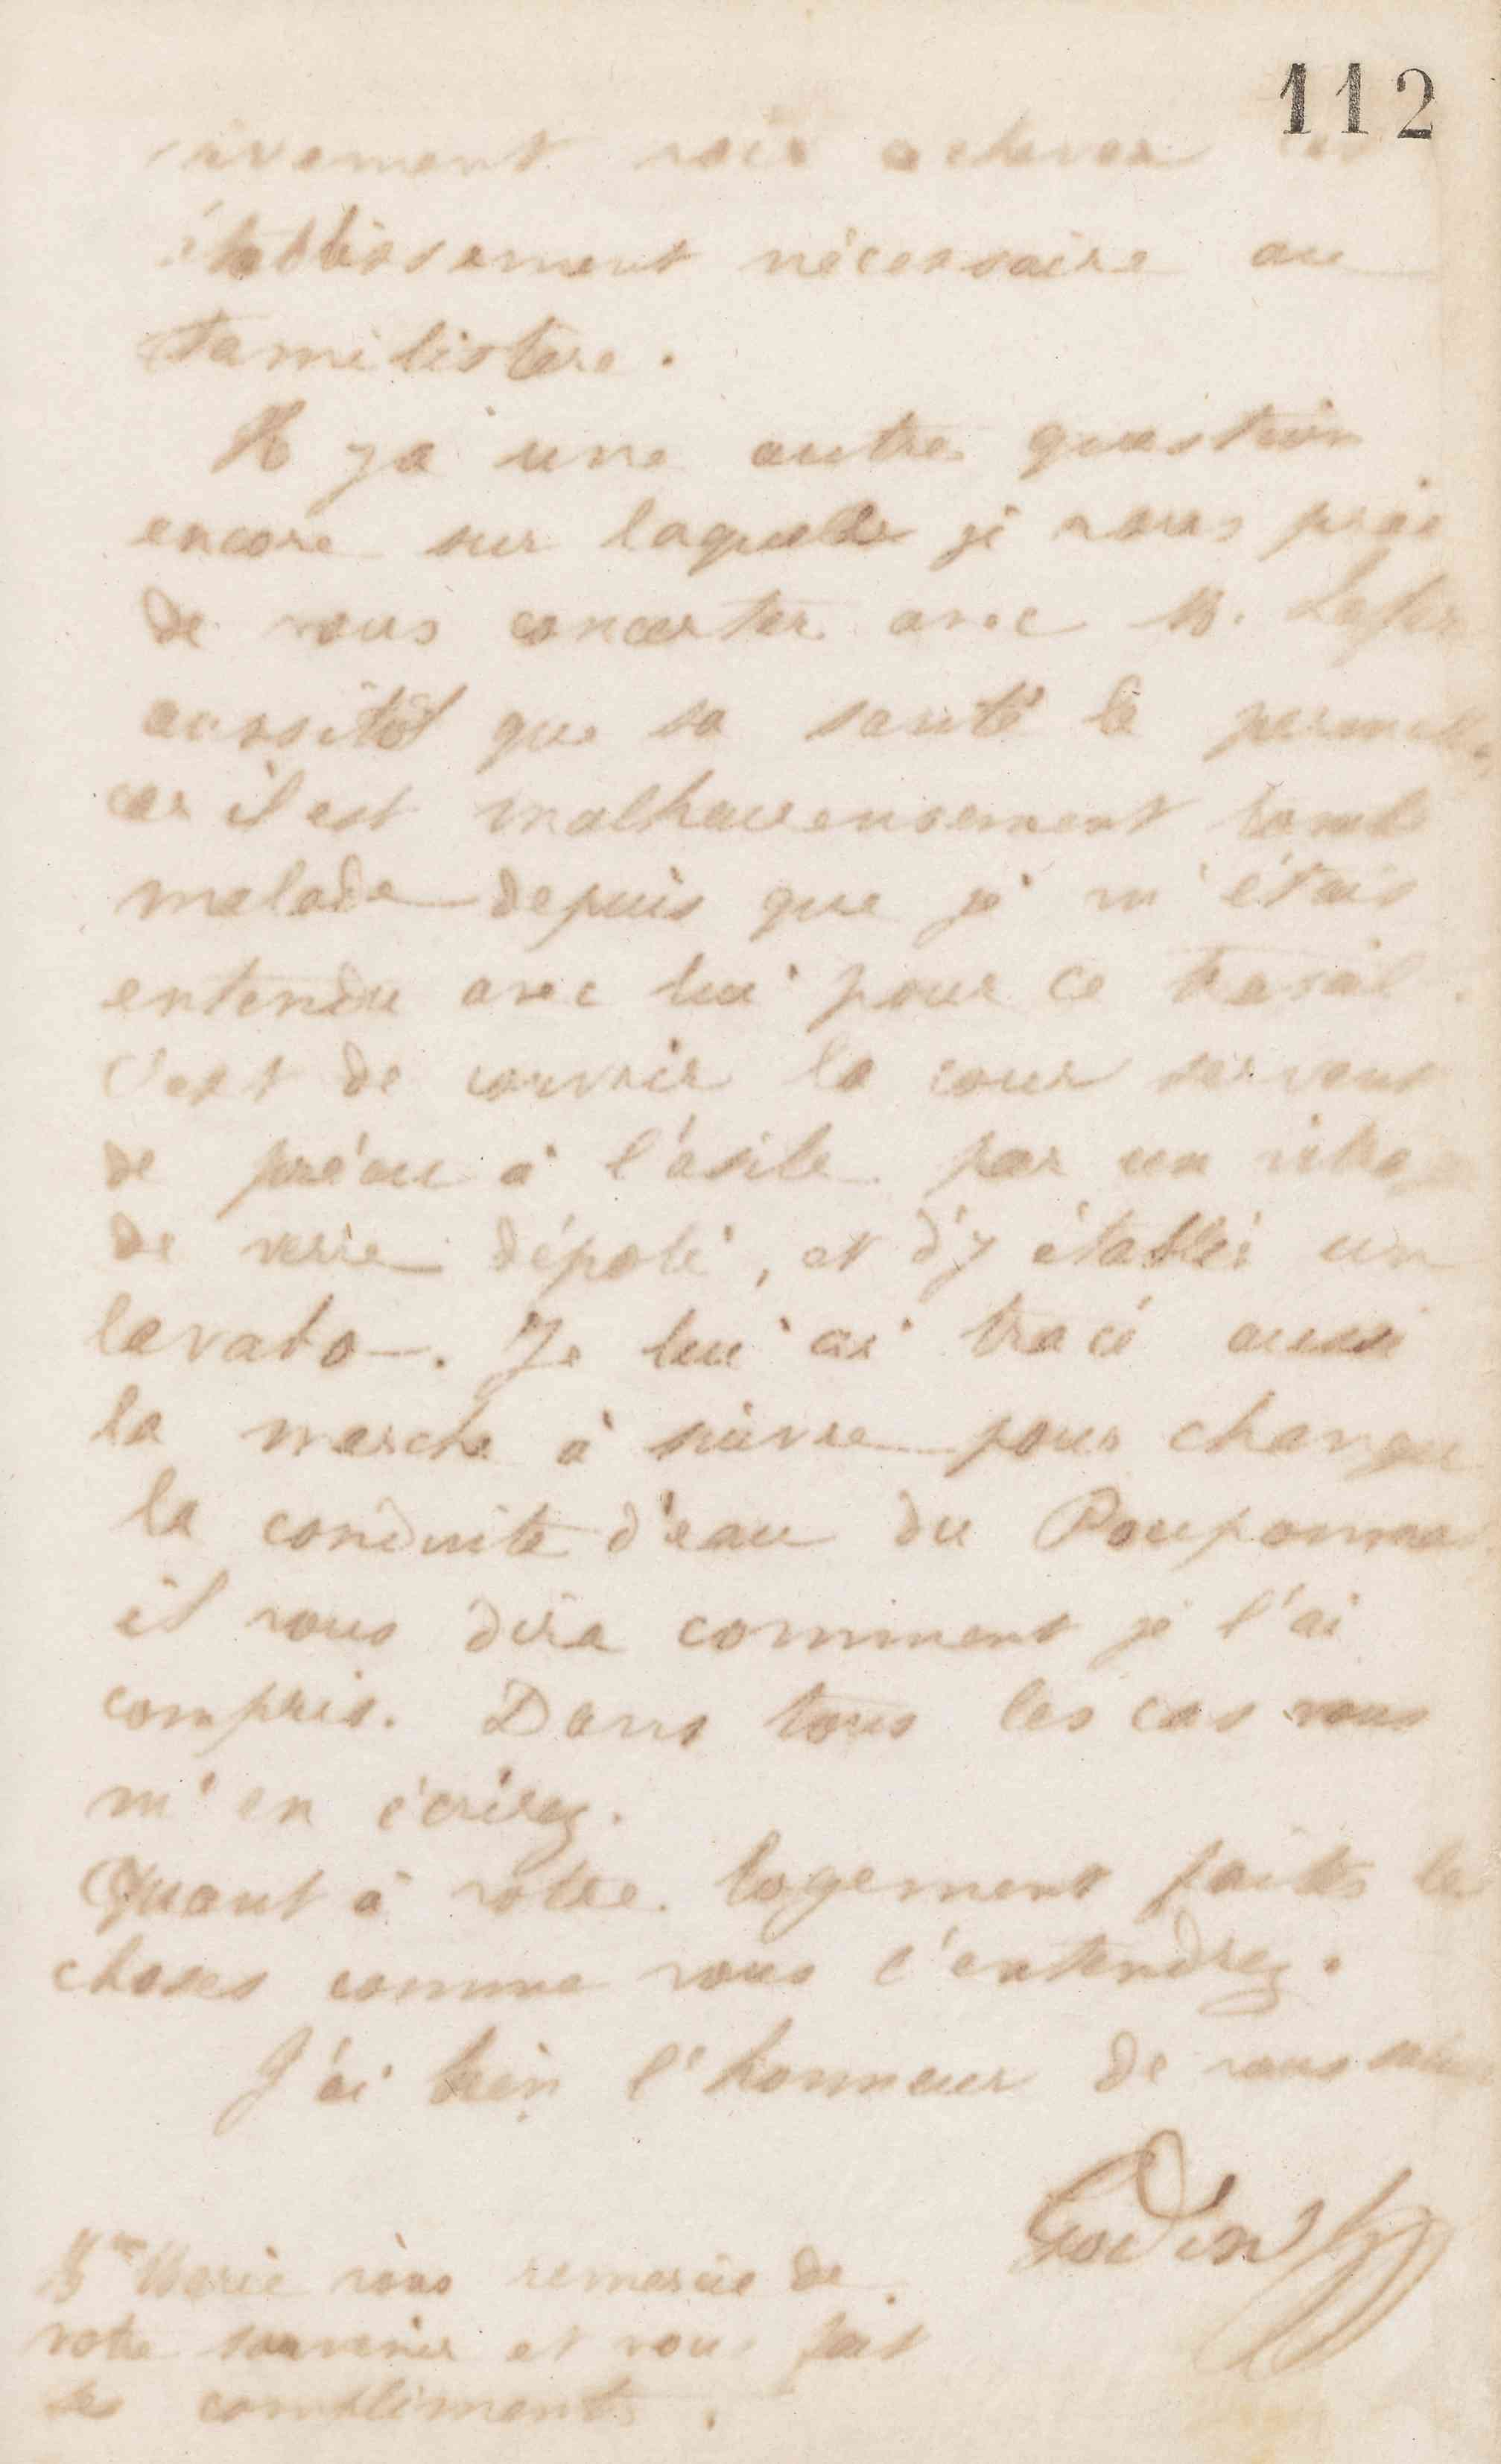 112
vivement voir achever cet
établissement nécessaire au
familistère.
Il y a une autre question
encore sur laquelle je vous prie
de vous concerter avec M.
aussitôt que sa santé le permettra
car il est malheureusement tombé
malade depuis que je m'étais
entendu avec lui pour ce travail.
C'est de couvrir la cour servant
de préau à l'asile par un vitrage
de verre dépoli, et d'y établir un
lavabo. Je lui ai tracé aussi
la marche à suivre pour changer
la conduite d'eau du Pouponnat
il vous dira comment je l'ai
compris. Dans tous les cas vous
m'en écrirez.
Quant à votre logement faites les
choses comme vous l'entendrez.
J'ai bien l'honneur de vous saluer
Godin
Mme Marie vous remercie de
votre souvenir et vous fait
ses compliments.